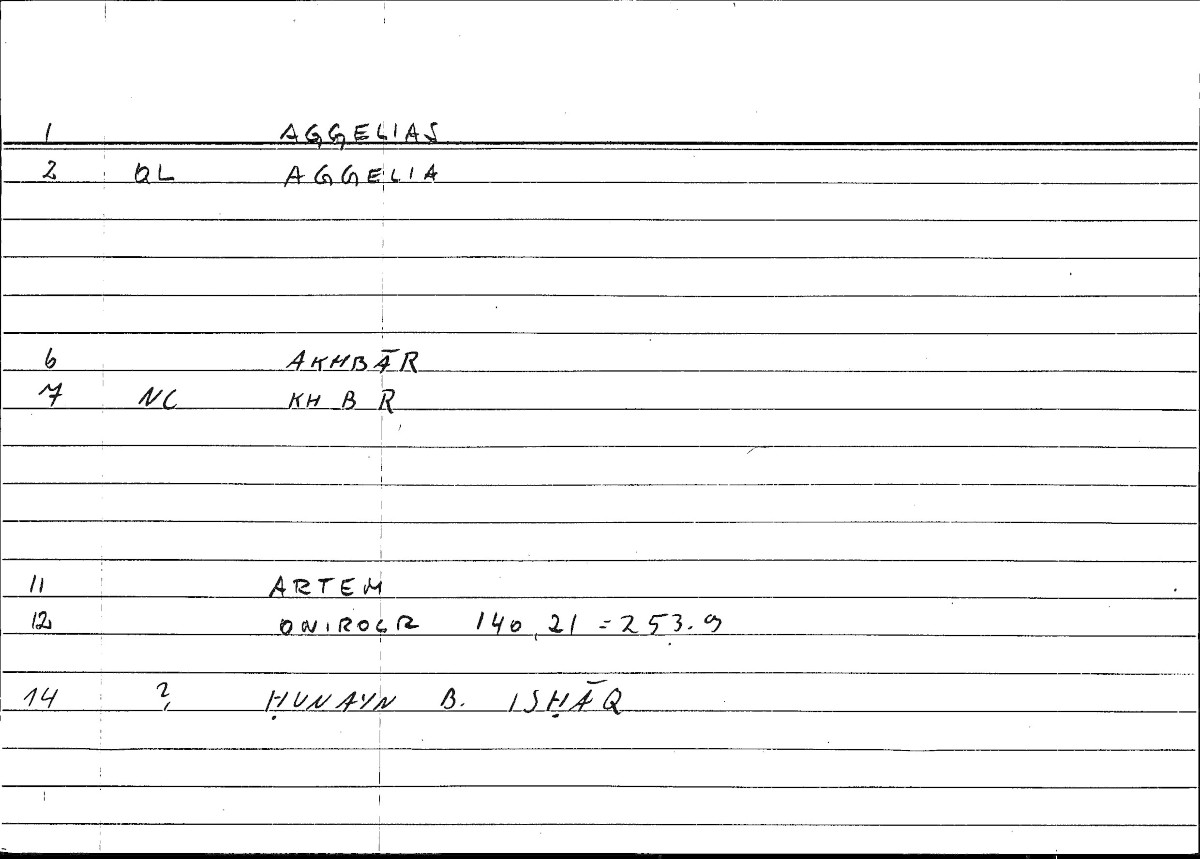 1 AGGELIAS
2 QL AGGELIA
6 AKHBĀR
7 NC KH B R
11 ARTEM
12 ONIROCR 140,21 = 253.9
14 ? ḤUNAYN B. ISḤĀQ